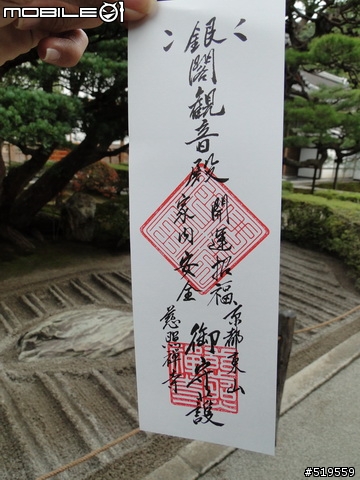 MOBILE01
銀閣観音殿
開運招福
家内安全
京都東山
慈照禅寺
御守護
#519559